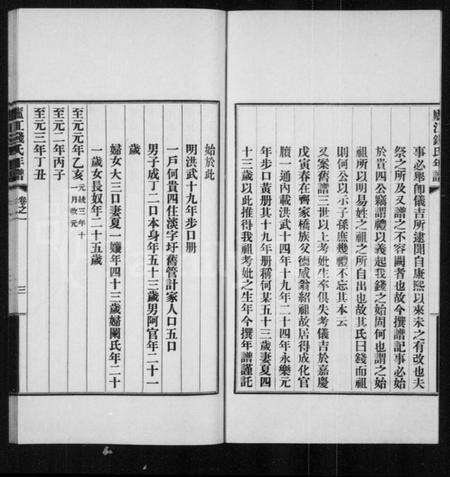 廬江錢氏年譜
事必舉卽儀吉所逮聞自康熙以來未之有改也夫
祭之所及又譜之不容闕者也故今撰譜記事必始
於貴四公竊謂禮以義起我錢之始固何也謂之始
祖所以明易姓之祖之所自出也故其氏曰錢而祖
則何公以示子孫庶幾禮不忘其本云
又案舊譜三世以上考妣生卒俱失考儀吉於嘉慶
戊寅春在齊家橋族父德威翁紹祖故居得成化官
牘一通內載洪武十四年十九年二十四年永樂元
年步口黃册其十九年册稱何某五十三歲妻夏四
十三歲以此推得我祖考妣之生年今撰年譜謹託
始於此
明洪武十九年步口册
一戶何貴四住漢字圩舊管計家人口五口
男子成丁二口本身年五十三歲男阿官年二十一
歲
婦女大三口妻夏一孃年四十三歲婦闕氏年二十
一歲女長奴年二十五歲
至元元年乙亥元統三年十一月改元
至元二年丙子
至元三年丁丑
廬江錢氏年譜 卷之一 三